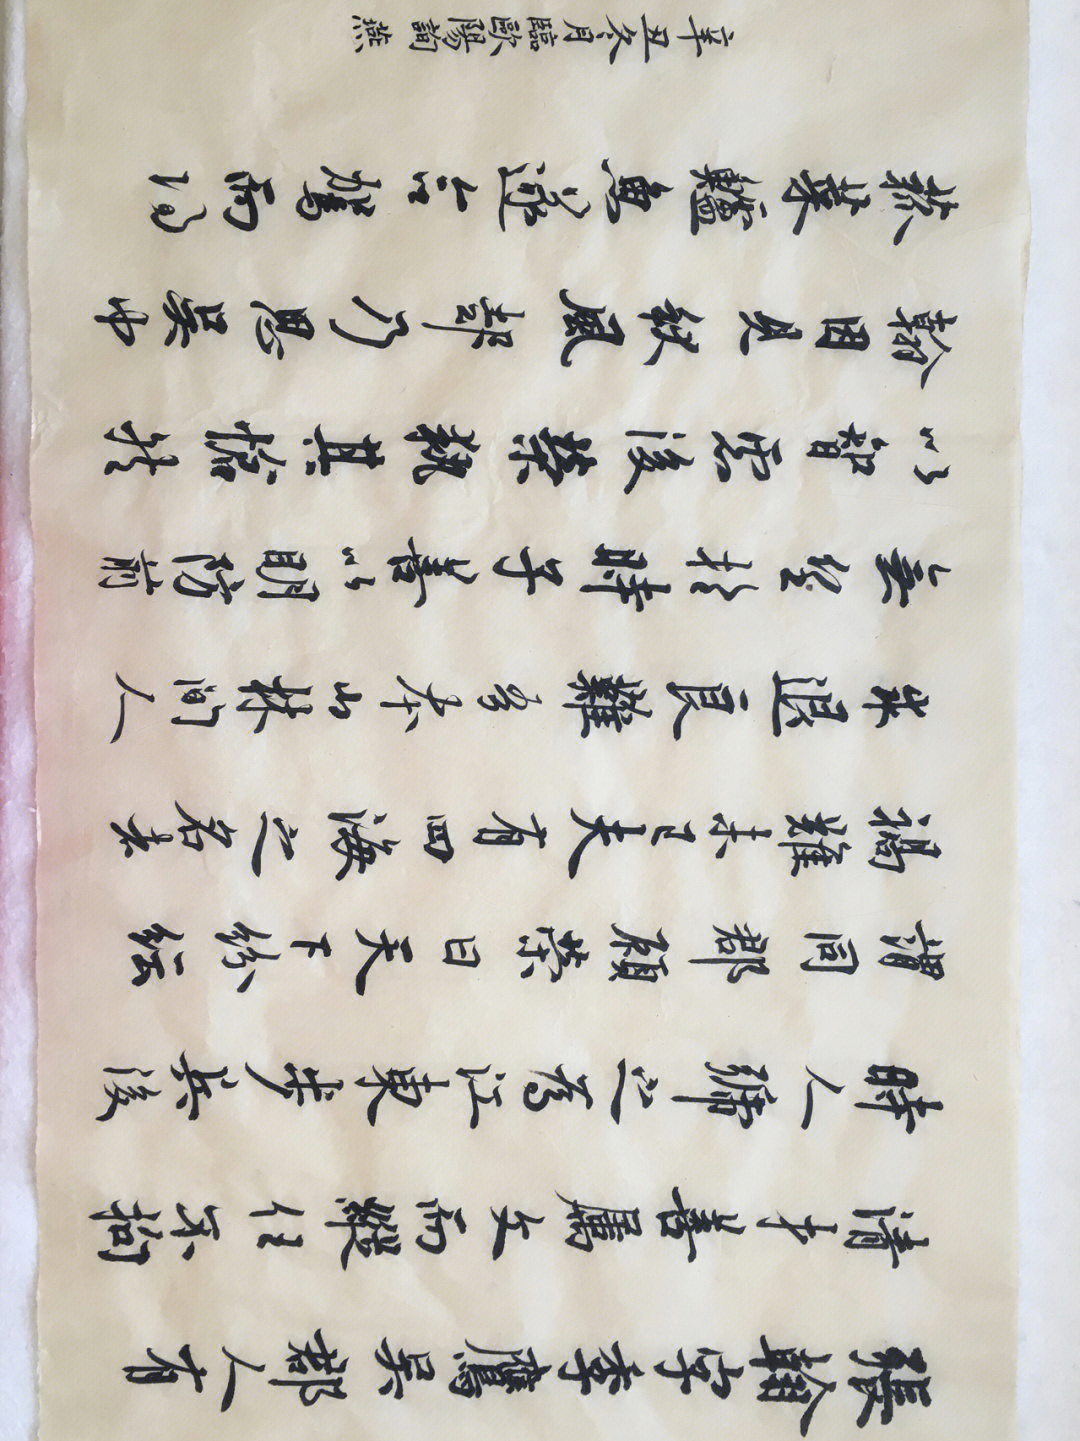 張翰字季鷹吳郡人有
清才善屬文而縱任不拘
時人號之為江東步兵後
謂同郡顧榮曰天下紛紜
禍難未已夫有四海之名者
求退良難吾本山林間人
無望於時子善以明防前
以智慮後榮執其愴然
翰因見秋風起乃思吳中
菰菜鱸魚遂命駕而歸
辛丑冬月臨歐陽詢 燕